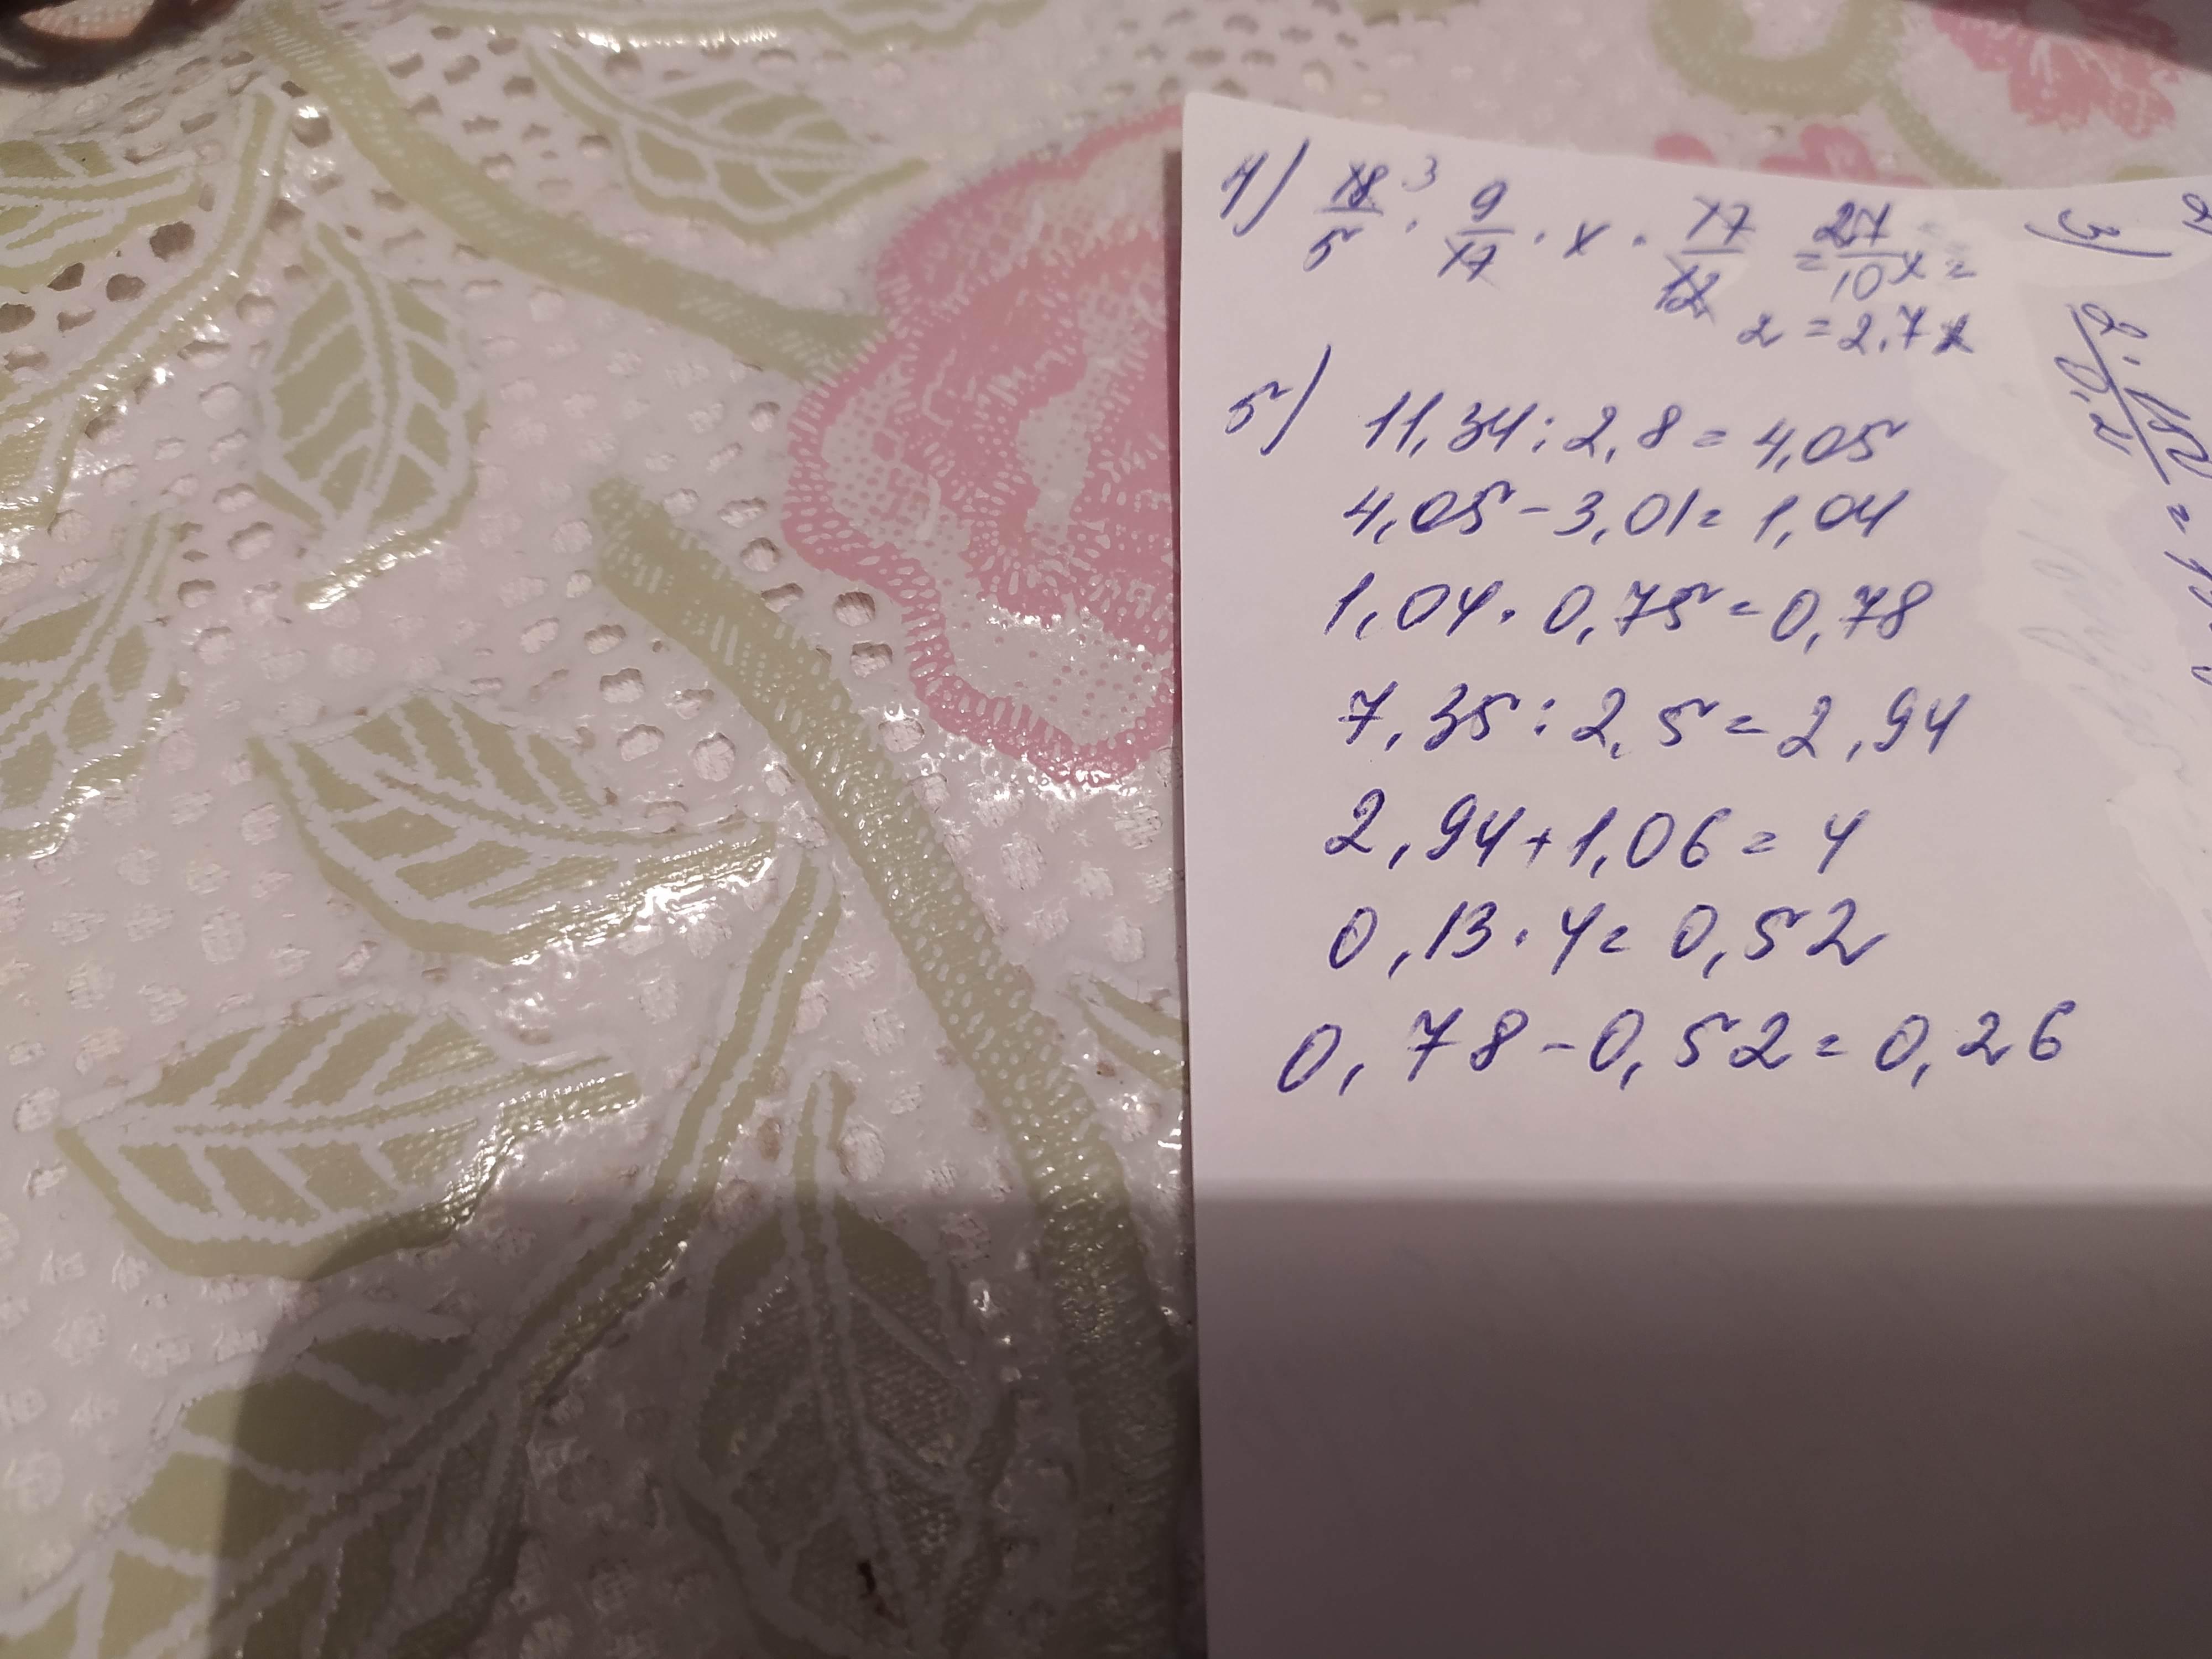 4) 18/5 3 · 9/17 · x · 17/12 = 27/10 x =
2 = 2,7 x
5) 11,34 : 2,8 = 4,05
4,05 - 3,01 = 1,04
1,04 · 0,75 = 0,78
7,35 : 2,5 = 2,94
2,94 + 1,06 = 4
0,13 · 4 = 0,52
0,78 - 0,52 = 0,26
3)